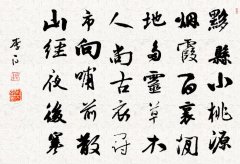 黟縣小桃源
烟霞百里間
地多靈草木
人尚古衣冠
市向晡前散
山經夜後寒
李白